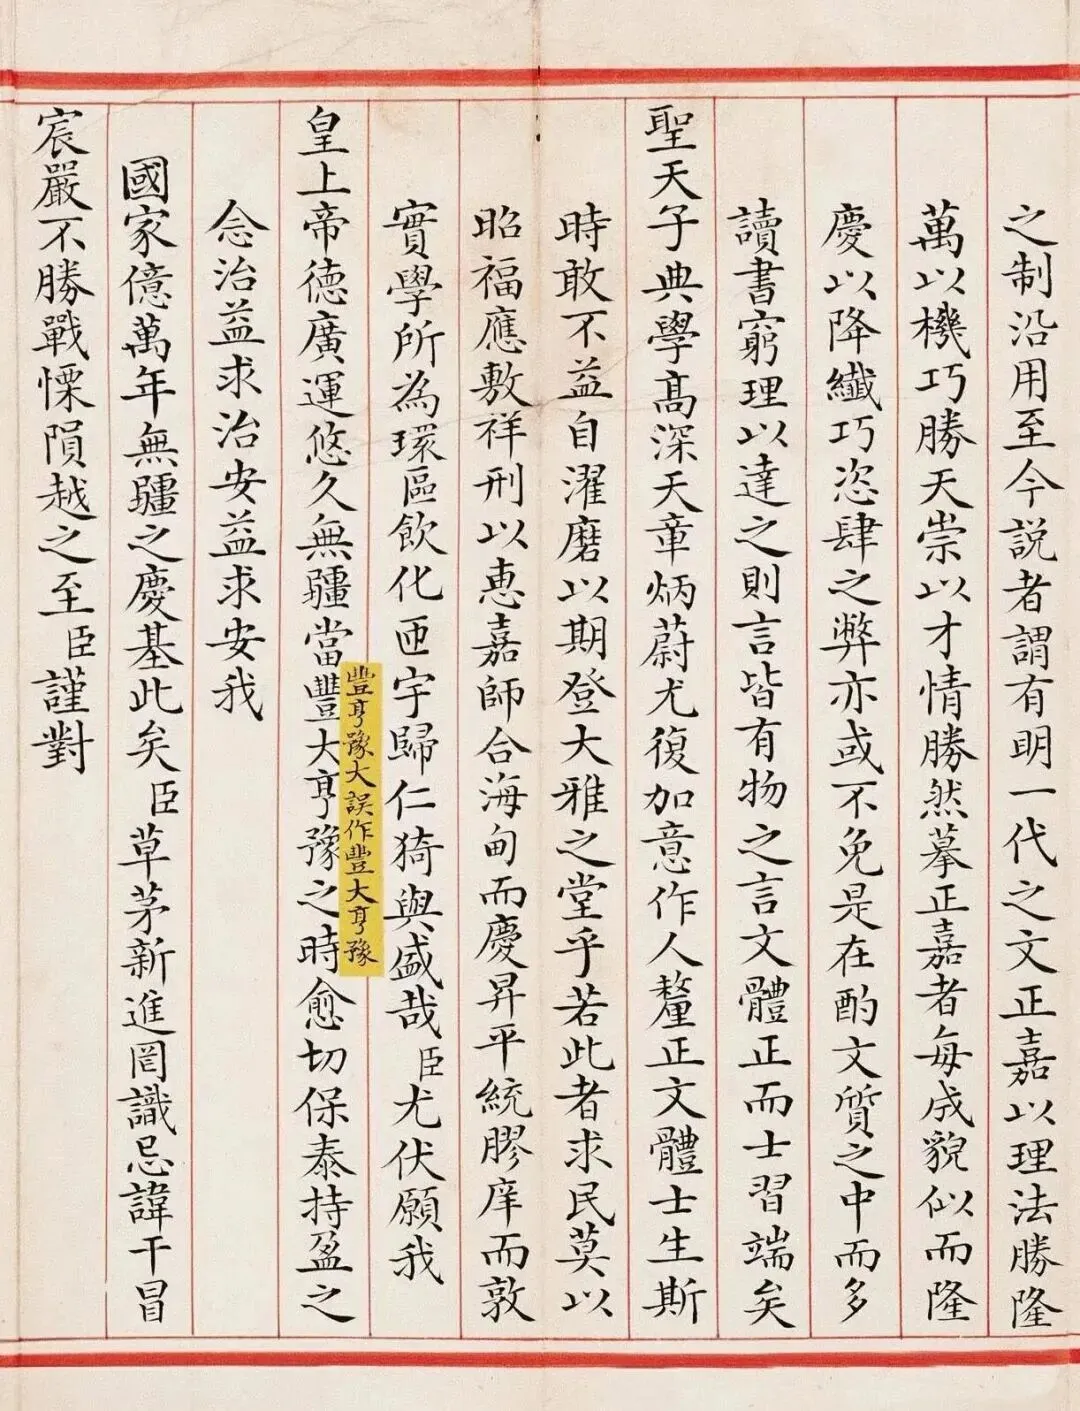 之制沿用至今説者謂有明一代之文正嘉以理法勝隆
萬以機巧勝天崇以才情勝然摹正嘉者每成貌似而隆
慶以降纖巧恣肆之弊亦或不免是在酌文質之中而多
讀書窮理以達之則言皆有物之言文體正而士習端矣
聖天子典學高深天章炳蔚尤復加意作人釐正文體士生斯
時敢不益自濯磨以期登大雅之堂乎若此者求民莫以
昭福應敷祥刑以惠嘉師合海甸而慶昇平統膠庠而敦
實學所為環區飲化匝宇歸仁猗與盛哉臣尤伏願我
皇上帝德廣運悠久無疆當豐大亨豫之時愈切保泰持盈之
豐亨豫大誤作豐大亨豫
念治益求治安益求安我
國家億萬年無疆之慶基此矣臣草茅新進罔識忌諱干冒
宸嚴不勝戰慄隕越之至臣謹對